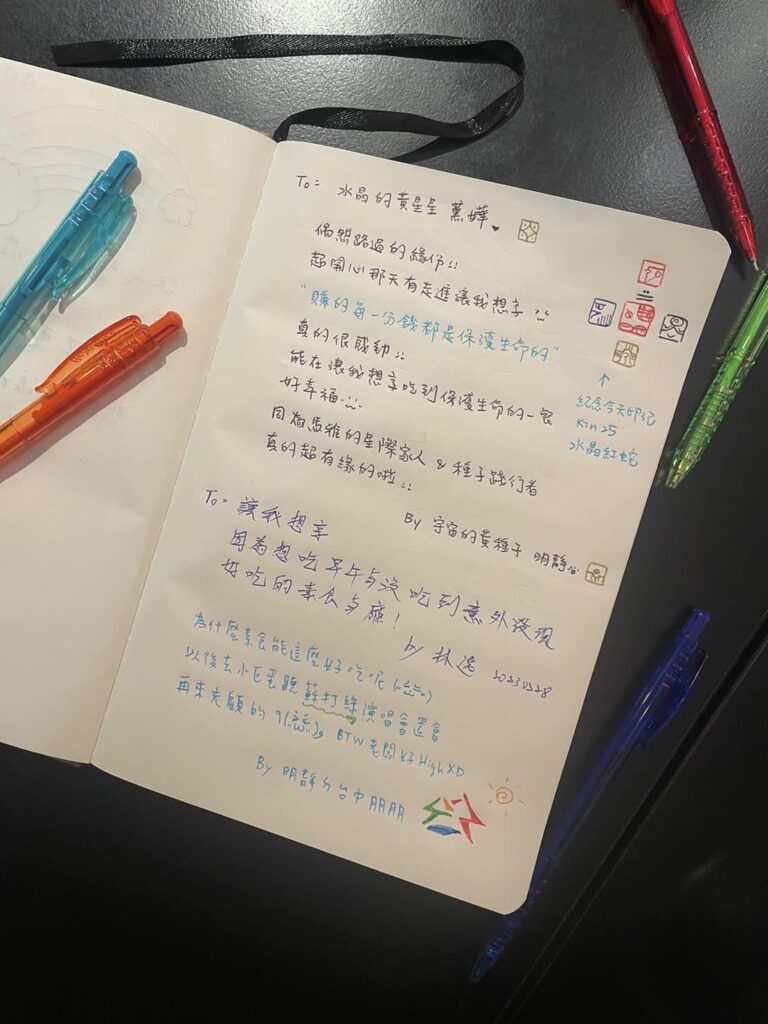 To= 水晶的黃星星 蕙嬅♥
偶然路過的緣份!!
超開心那天有走進讓我想享
"賺的每一分錢都是保護生命的"
真的很感動!!
能在讓我想享吃到保護生命的一餐
好幸福
同為思維的星際家人 & 種子踐行者
真的超有緣的啦!!
By 宇宙的黃種子 明靜
↑
紀念今天印記
Kin 25
水晶紅蛇
To= 讓我想享
因為想吃早午与沒吃到意外發現
好吃的素食与廳!
by 林 20230228
為什麼素食能這麼好吃呢
以後去小巨蛋聽蘇打綠演唱會還會
再來光顧的 BTW 老闆好High XD
By 明靜ㄉ台中朋朋